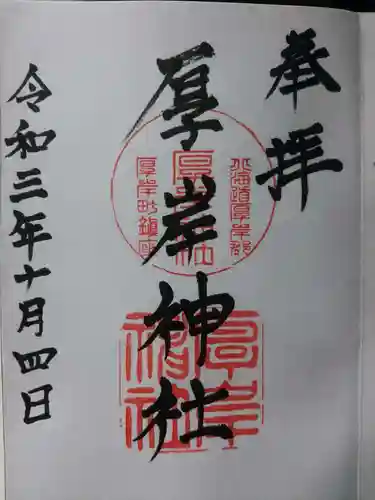 奉拝
厚岸神社
令和三年十月四日
北海道厚岸郡
厚岸神社
厚岸町鎮座
厚岸
神社